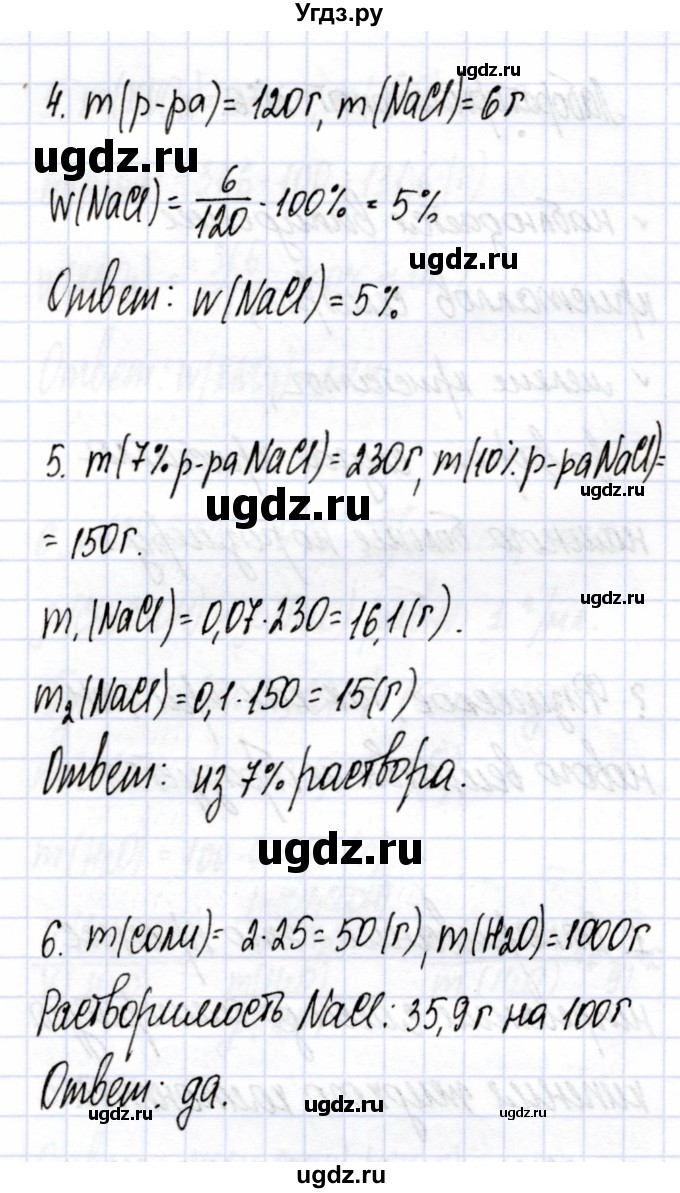 Угдз.ру
ugdz.ru
4. m(р-ра) = 120г, m(NaCl) = 6г
ugdz.ru
w(NaCl) = 6/120 · 100% = 5%
ugdz.ru
Ответ: w(NaCl) = 5%
5. m(7% р-ра NaCl) = 230г, m(10% р-ра NaCl) =
ugdz.ru
ugdz.ru
= 150г.
ugdz.ru
m₁(NaCl) = 0,07·230 = 16,1(г).
m₂(NaCl) = 0,1·150 = 15(г)
Ответ: из 7% раствора.
ugdz.ru
6. m(соли) = 2·25 = 50(г), m(H2O) = 1000г
Растворимость NaCl: 35,9г на 100г
Ответ: да.
ugdz.ru
ugdz.ru
ugdz.ru
ugdz.ru